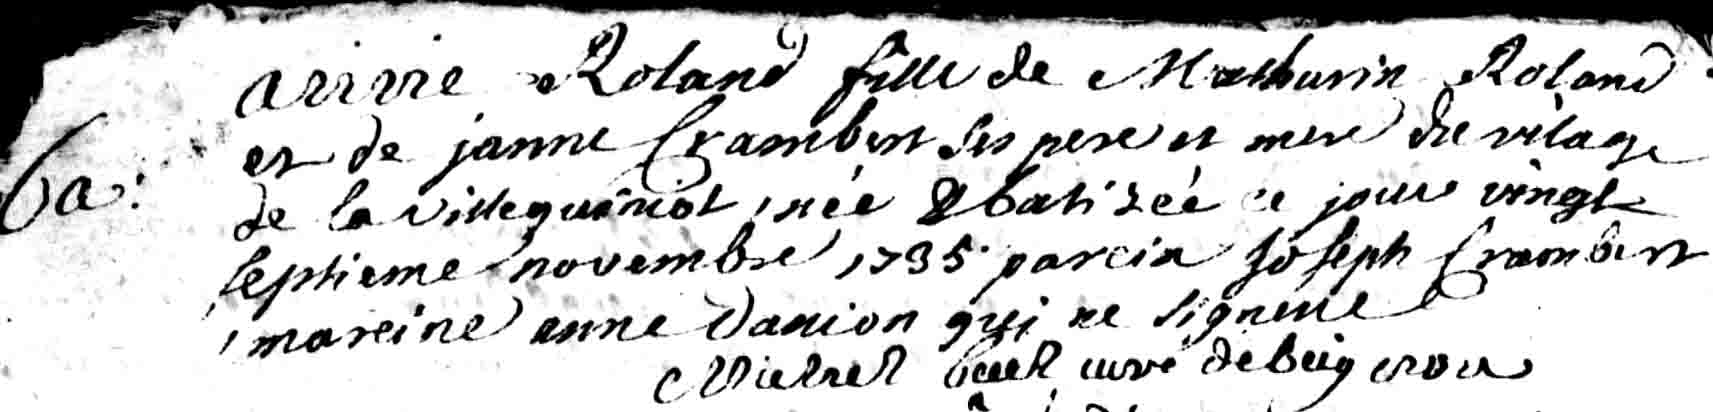 Roland fille de Mathurin Roland
ba: et de janne Crambert ses pere et mere du vilage
de la villeguéniot, née & batizéé ce jour vingt
septieme novembre 1735 parein Joseph Crambert
mareine anne Danion qui ne signene
Michel curé de